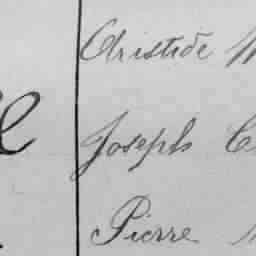 Aristide
Joseph
Pierre